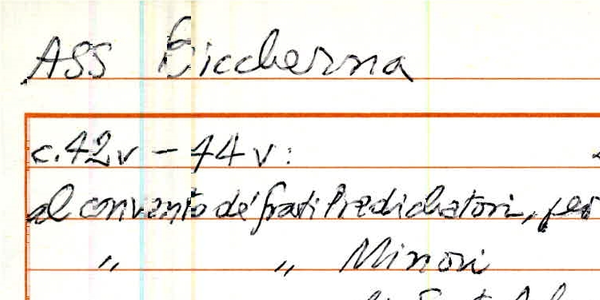 ASS Biccherna
c. 42v - 44v:
al convento de' frati Predichatori, per
" " Minori